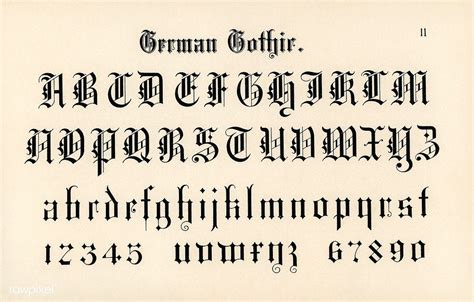 German Gothic.
11
ABCDEFGHIJKLM
NOPQRSTUVWXYZ
abcdefghijklmnopqrst
12345 uvwxyz 67890
rawpixel